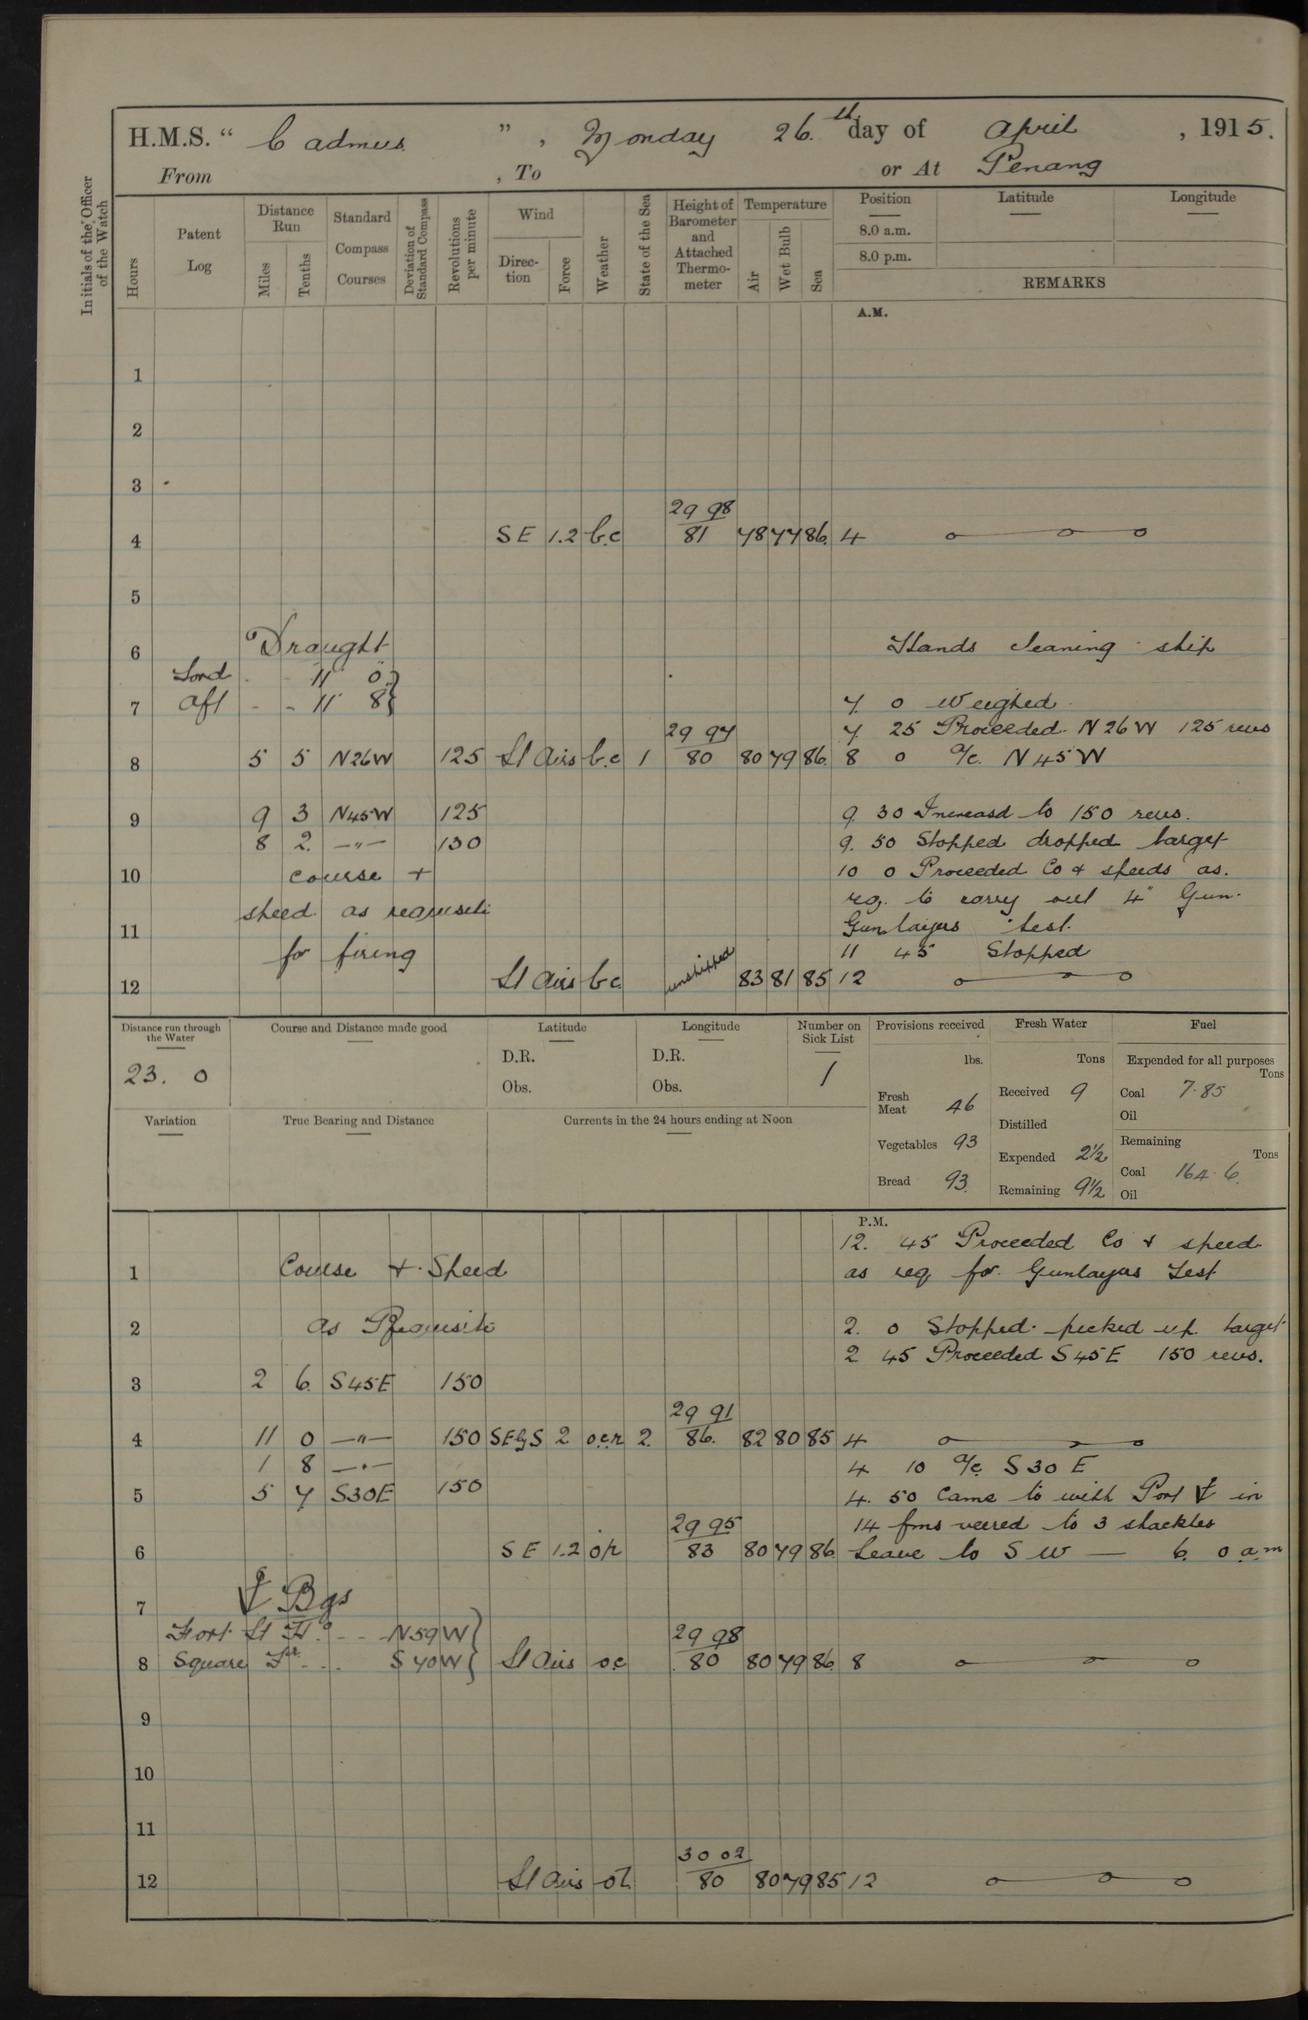 H.M.S. “ Cadmus ” , Monday 26.th day of April , 1915.
From , To or At Penang
Initials of the Officer of the Watch
Hours
Patent Log
Distance Run
Miles
Tenths
Standard Compass Courses
Deviation of Standard Compass
Revolutions per minute
Wind
Direction
Force
Weather
State of the Sea
Height of Barometer and Attached Thermometer
Temperature
Air
Wet Bulb
Sea
Position Latitude Longitude
8.0 a.m.
8.0 p.m.
REMARKS
A.M.
1
2
3
29 98
4 SE 1.2 b.c 81 78 77 86. 4
5
6 Draught Hands cleaning ship
Ford - 11" 0"
7 Aft - - 11" 8 7. 0 Weighed
29 97 7. 25 Proceeded N26W 125 revs
8 5 5 N26W 125 Lt Airs b.c 1 80 80 79 86. 8 0 a/c. N45W
9 9 3 N45W 125 9. 30 Increasd to 150 revs.
8 2. —"— 130 9. 50 Stopped dropped target
10 course + 10 0 Proceeded Co & speeds as.
speed as requisite req. to carry out 4" Gun.
11 Gunlayers test.
for firing 11 45 Stopped
12 Lt Airs b.c. unshipped 83 81 85 12
Distance run through the Water Course and Distance made good Latitude Longitude Number on Sick List Provisions received Fresh Water Fuel
23. 0 D.R. D.R. 1 lbs. Tons Expended for all purposes Tons
Obs. Obs. Fresh Meat 46 Received 9 Coal 7.85
Oil
Variation True Bearing and Distance Currents in the 24 hours ending at Noon Distilled
Vegetables 93 Expended 2½ Remaining Tons
Bread 93. Remaining 9½ Coal 164.6.
Oil
P.M.
12. 45 Proceeded Co & speed
1 Course + Speed as req for Gunlayers Test
2 as Requisite 2. 0 Stopped. picked up target
2 45 Proceeded S45E 150 revs.
3 2 6. S45E 150
29 91
4 11 0 —"— 150 SEbyS 2 o.c.r 2. 86. 82 80 85 4
1 8 —"— 4 10 a/c S30E
5 5 7 S30E 150 4. 50 Came to with Port ⚓ in
29 95 14 fms veered to 3 shackles
6 SE 1.2 o/r 83 80 79 86. Leave to S W — 6. 0 a.m
7 ⚓ Bgs
Fort Pt Ft. - - N59W 29 98
8 Square - - S70W Lt Airs o.c 80 80 79 86. 8
9
10
11
30 02
12 Lt Airs 80 80 79 85 12